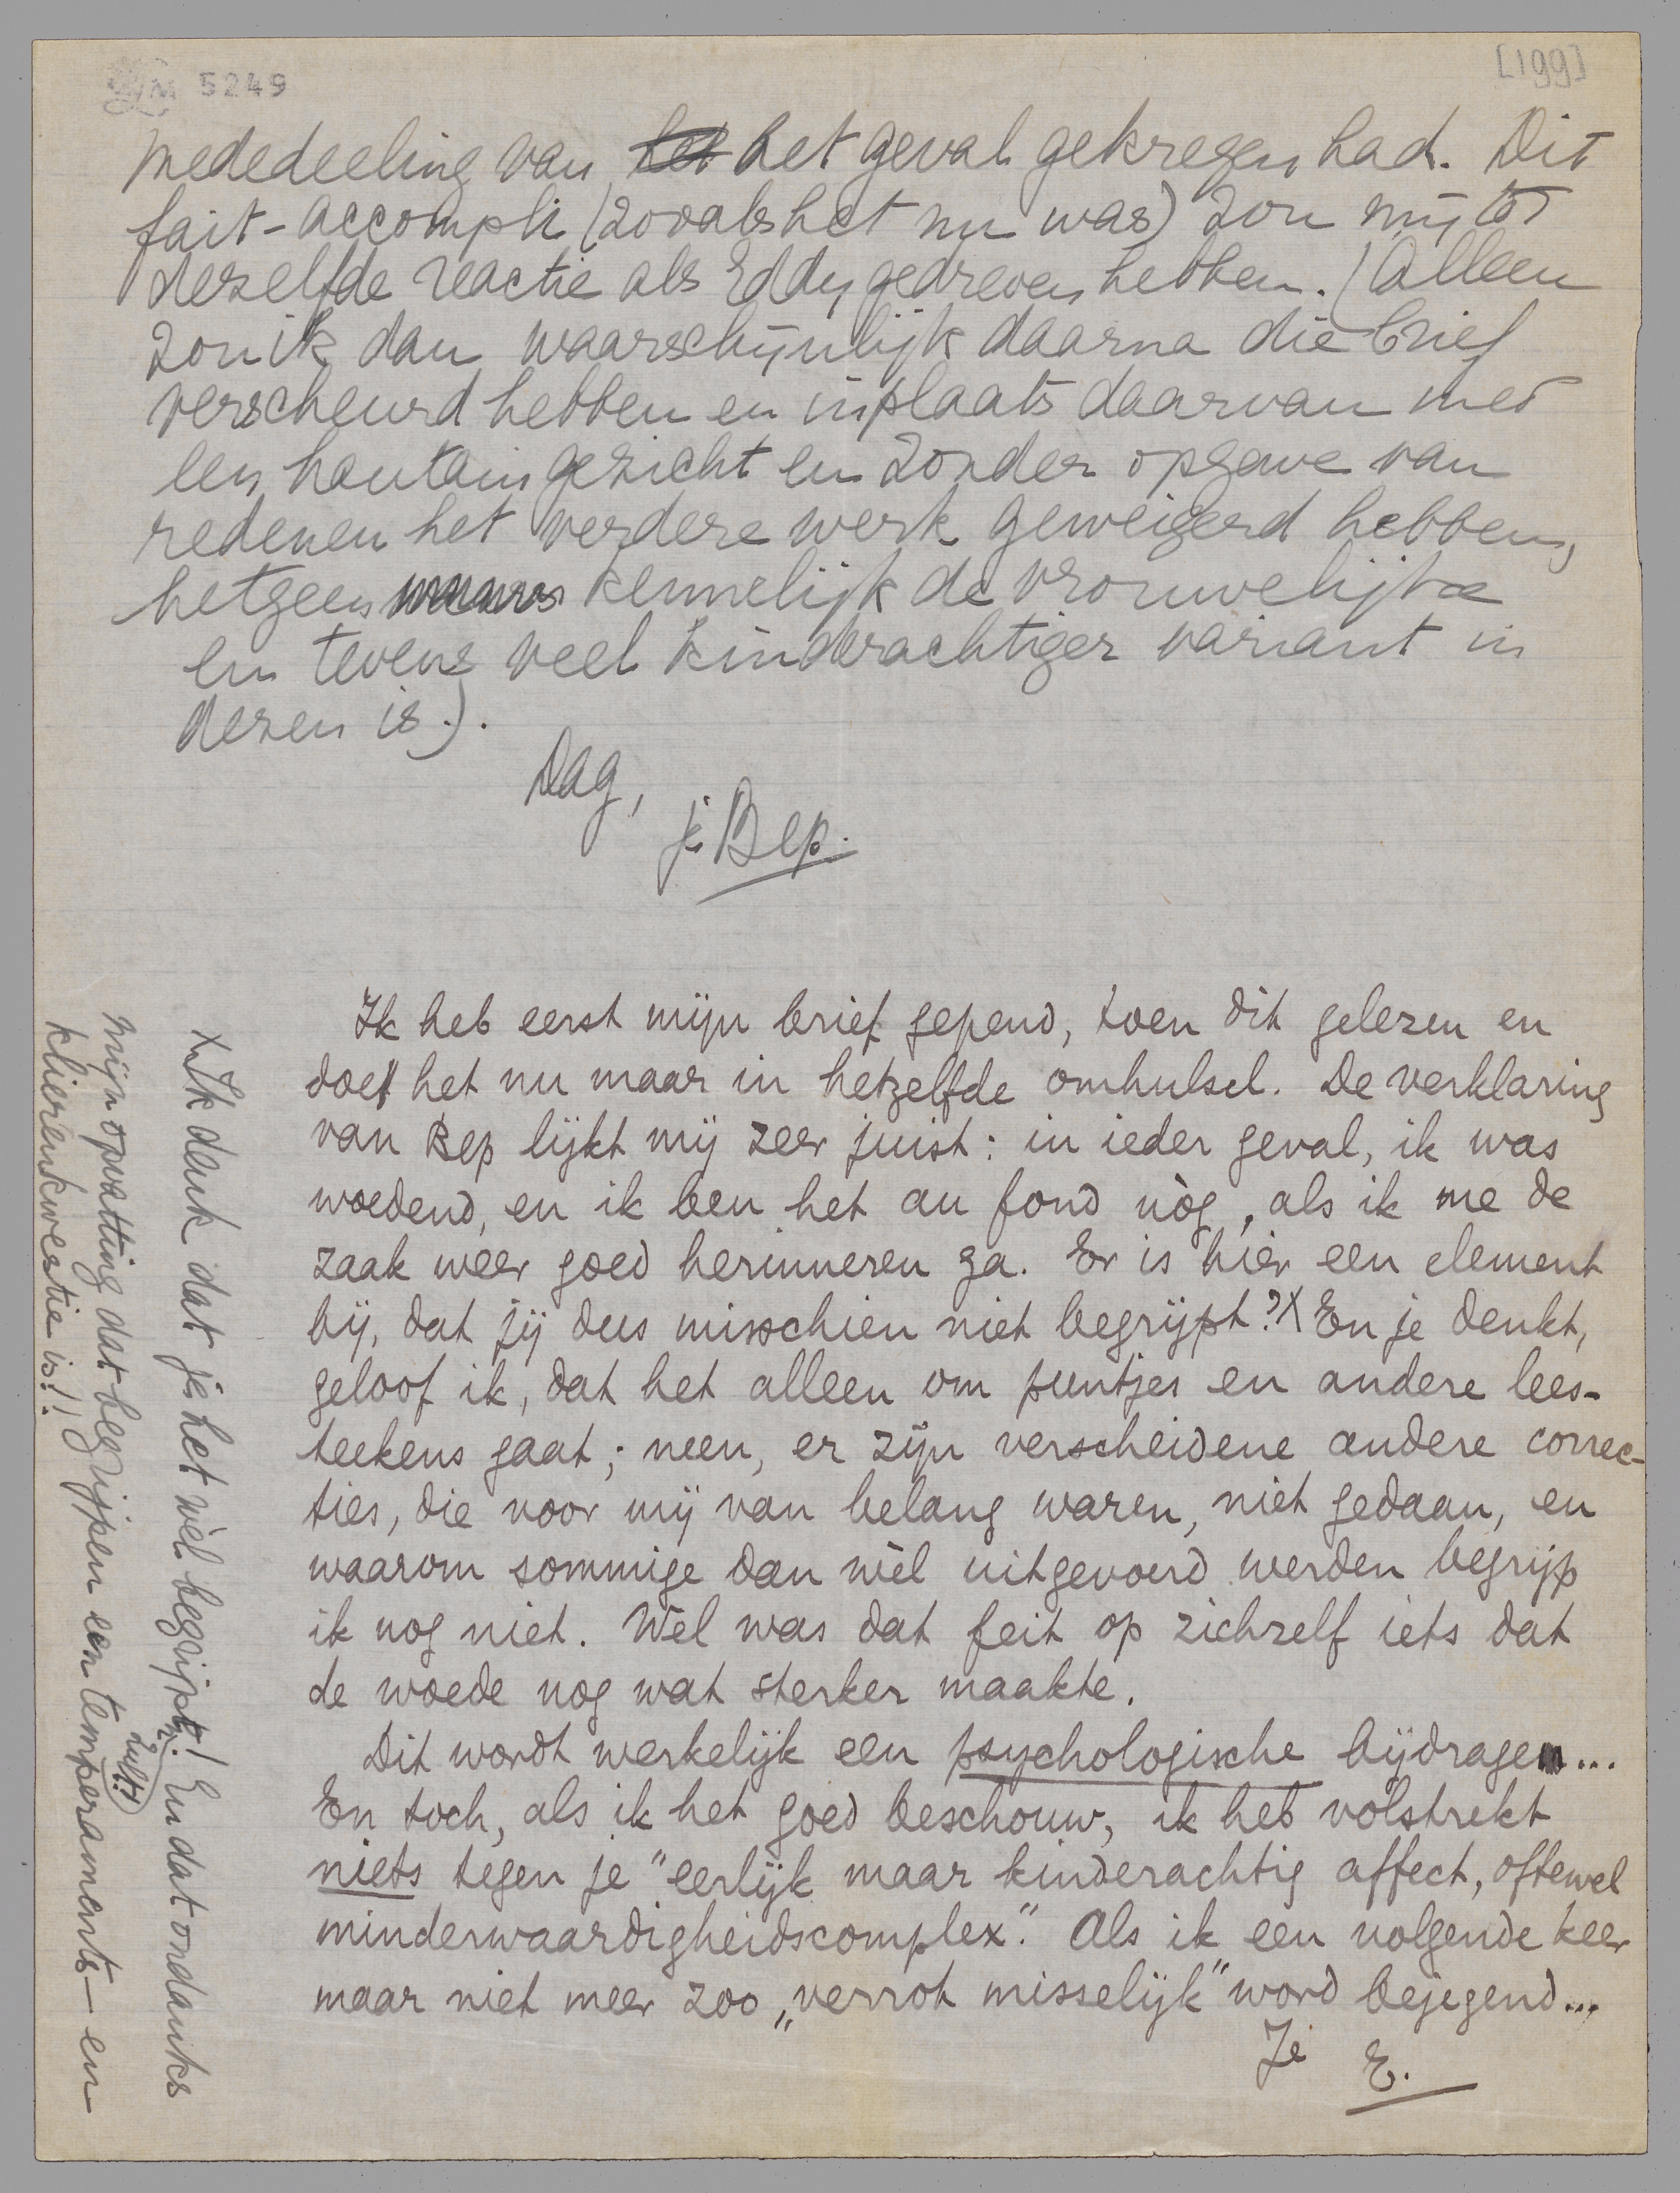 LM 5249
[199]
mededeeling van het het geval gekregen had. Dit
fait-accompli (zooals het nu was) zou mij tot
dezelfde reactie als Eddy gedreven hebben. (Alleen
zou ik dan waarschijnlijk daarna die brief
verscheurd hebben en inplaats daarvan met
een hautain gezicht en zonder opgave van
redenen het verdere werk geweigerd hebben,
hetgeen kennelijk de vrouwelijke
en tevens veel kinderachtiger variant in
dezen is.).
Dag,
je Bep.
Ik heb eerst mijn brief gepend, toen dit gelezen en
doe het nu maar in hetzelfde omhulsel. De verklaring
van Bep lijkt mij zeer juist: in ieder geval, ik was
woedend, en ik ben het au fond nòg, als ik me de
zaak weer goed herinneren ga. Er is hier een element
bij, dat jij dus misschien niet begrijpt?X En je denkt,
geloof ik, dat het alleen om puntjes en andere lees-
teekens gaat; neen, er zijn verscheidene andere correc-
ties, die voor mij van belang waren, niet gedaan, en
waarom sommige dan wèl uitgevoerd werden begrijp
ik nog niet. Wel was dat feit op zichzelf iets dat
de woede nog wat sterker maakte.
Dit wordt werkelijk een psychologische bijdrage...
En toch, als ik het goed beschouw, ik heb volstrekt
niets tegen je "eerlijk maar kinderachtig affect, oftewel
minderwaardigheidscomplex". Als ik een volgende keer
maar niet meer zoo „verrot misselijk" word bejegend...
Je E.
X Ik denk dat je het wèl begrijpen zult! En dat ondanks
mijn opvatting dat begrijpen een temperaments- en
klierenkwestie is!!